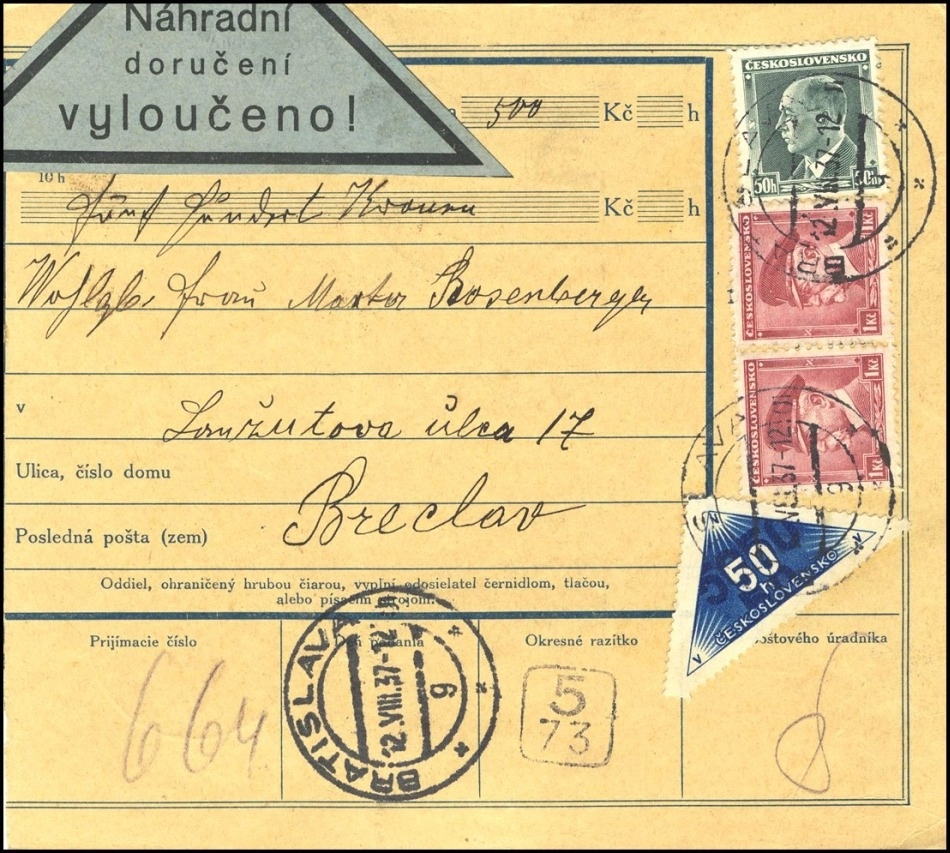 Náhradní
doručení
vyloučeno!
500 Kč h
10 h
Fünf Hundert Kronen Kč h
Wohlgb. Frau Marta Rosenberger
v
ulca 17
Ulica, číslo domu
Breclav
Posledná pošta (zem)
Oddiel, ohraničený hrubou čiarou, vyplní odosielatel černidlom, tlačou,
alebo písacím strojom.
Prijímacie číslo
Okresné razítko
poštového úradníka
664
5
73
8
BRATISLAVA 9
12.VIII.37-12
ČESKOSLOVENSKO
50h 50h
ČESKOSLOVENSKO
1Kč 1Kč
ČESKOSLOVENSKO
1Kč 1Kč
V V
50
h
ČESKOSLOVENSKO
V